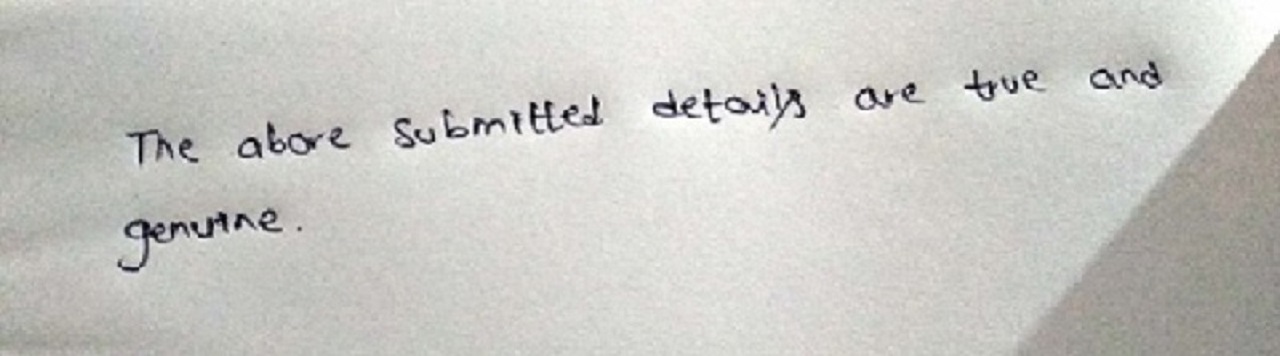 The above submitted details are true and
genuine.